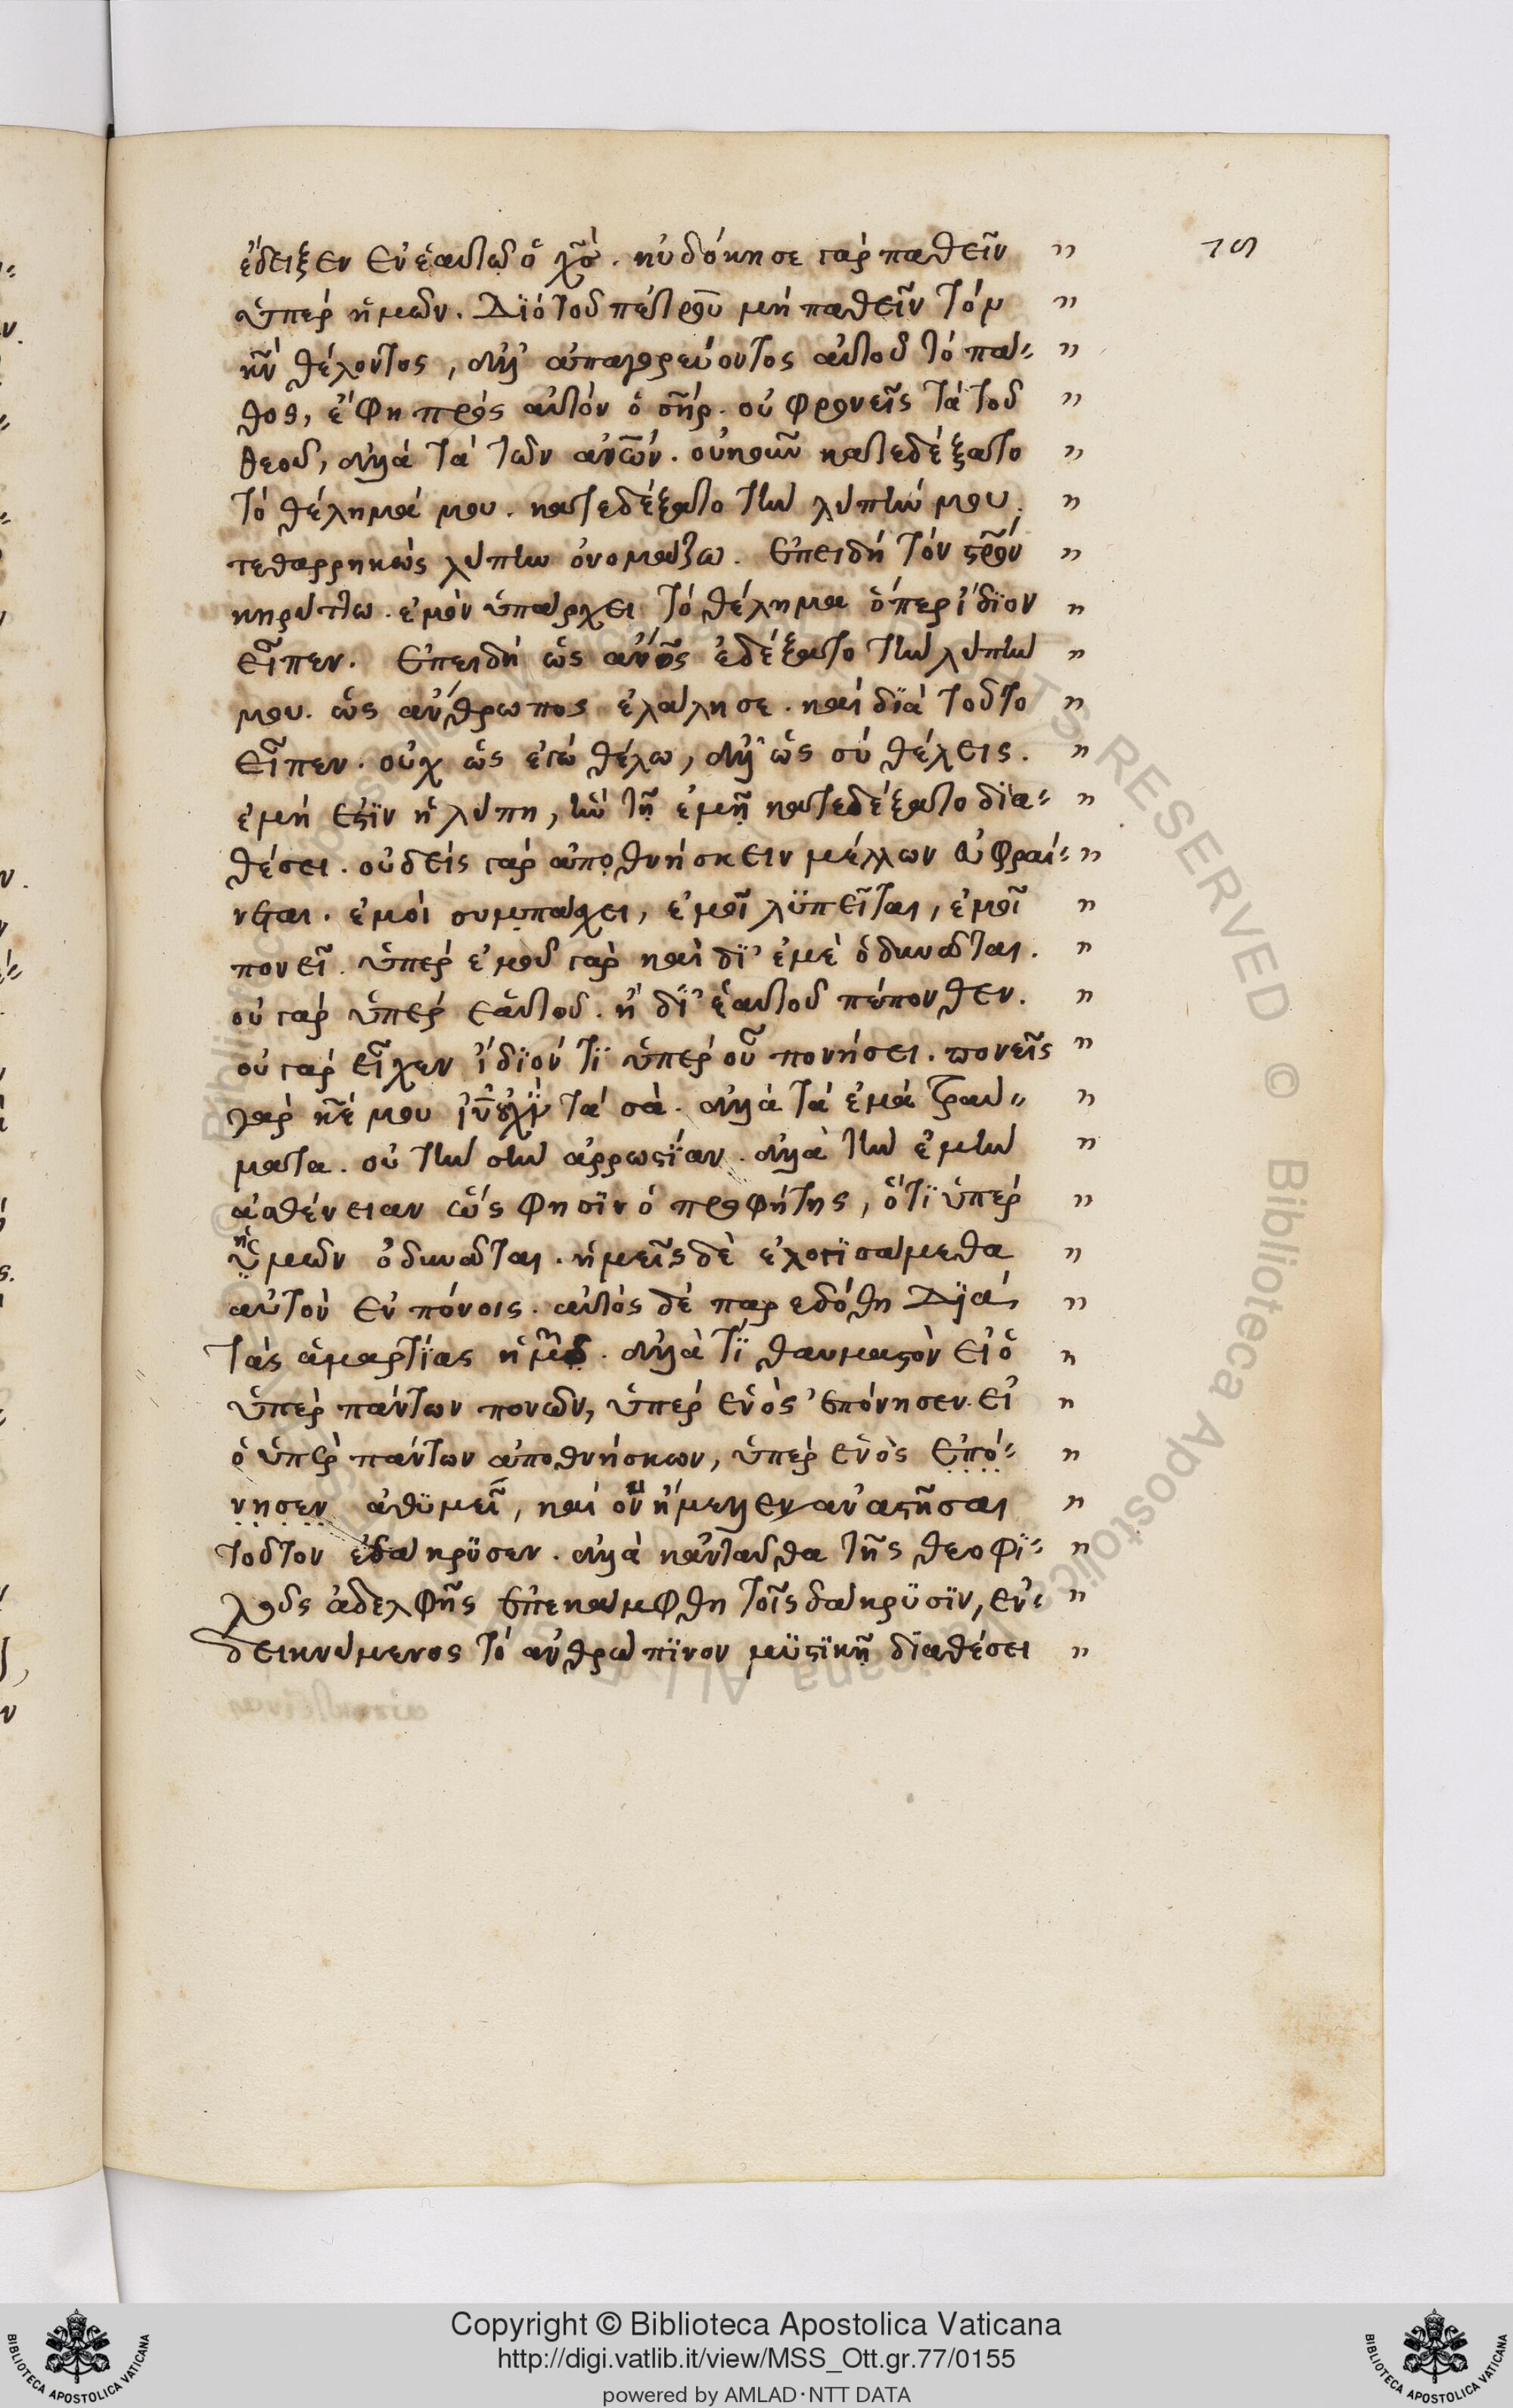 ἔδειξεν ἐν ἑαυτῶ ὁ χσ̄. ηὐδόκησε γὰρ παθεῖν "
ὑπὲρ ἡμῶν. Διὸ τοῦ πέτρου μὴ παθεῖν τὸν "
κν̄ θέλοντος, ἀλλ' ἀπαγορεύοντος αὐτοῦ τὸ πά= "
θος, ἔφη πρὸς αὐτὸν ὁ σηρ̄. οὐ φρονεῖς τὰ τοῦ "
θεοῦ, ἀλλὰ τὰ τῶν ἀνων̄. οὐκοῦν κατεδέξατο "
τὸ θέλημά μου. κατεδέξατο τὴν λύπην μου. "
τεθαρρηκὼς λύπην ὀνομάζω. Ἐπειδὴ τὸν σρον̄ "
κηρύττω. ἐμὸν ὑπάρχει τὸ θέλημα ὅπερ ἴδϊον "
εἶπεν. Ἐπειδὴ ὡς ἀνος̄ ἐδέξατο τὴν λύπην "
μου. ὡς ἄνθρωπος ἐλάλησε. καὶ δϊὰ τοῦτο "
εἶπεν. οὐχ ὡς ἐγὼ θέλω, ἀλλ' ὡς σὺ θέλεις. "
ἐμή ἐστϊν ἡ λύπη, ἣν τῆ ἐμῆ κατεδέξατο δϊα= "
θέσει. οὐδεὶς γὰρ ἀποθνήσκειν μέλλων εὐφραί= "
νεται. ἐμοὶ συμπάσχει, ἐμοὶ λϋπεῖται, ἐμοὶ "
πονεῖ. ὑπὲρ ἐμοῦ γὰρ καὶ δϊ' ἐμὲ ὀδυνᾶται. "
οὐ γὰρ ὑπὲρ ἑαυτοῦ. ἢ δϊ' ἑαυτοῦ πέπονθεν. "
οὐ γὰρ εἶχεν ἴδϊόν τϊ ὑπὲρ οὗ πονήσει. πονεῖς "
γὰρ κε̄ μου ιῡ οὐχϊ τὰ σὰ. ἀλλὰ τὰ ἐμὰ τραύ= "
ματα. οὐ τὴν σὴν ἀρρωστϊαν. ἀλλὰ τὴν ἐμὴν "
ἀσθένειαν ὥς φησϊν ὁ προφήτης, ὅτϊ ὑπὲρ "
ἡ
ὑμῶν ὀδυνᾶται. ἡμεῖς δὲ ἐλογϊσάμεθα "
αὐτὸν ἐν πόνοις. αὐτὸς δὲ παρεδόθη Δϊὰ "
τὰς ἁμαρτϊας ἡμῶν. ἀλλὰ τϊ θαυμαστὸν εἰ ὁ "
ὑπὲρ πάντων πονῶν, ὑπὲρ ἑνὸς ἐπόνησεν. εἰ "
ὁ ὑπὲρ πάντων ἀποθνήσκων, ὑπὲρ ἑνὸς ἐπό= "
νησεν ἀθϋμεῖ, καὶ ὃν ἤμελλεν ἀναστῆσαι "
τοῦτον ἐδάκρϋσεν. ἀλλὰ κἀνταῦθα τῆς θεοφϊ= "
λοῦς ἀδελφῆς ἐπεκάμφθη τοῖς δάκρϋσϊν, ἐν= "
δεικνύμενος τὸ ἀνθρώπϊνον μϋστϊκῆ δϊαθέσει "
Copyright © Biblioteca Apostolica Vaticana
http://digi.vatlib.it/view/MSS_Ott.gr.77/0155
powered by AMLAD·NTT DATA